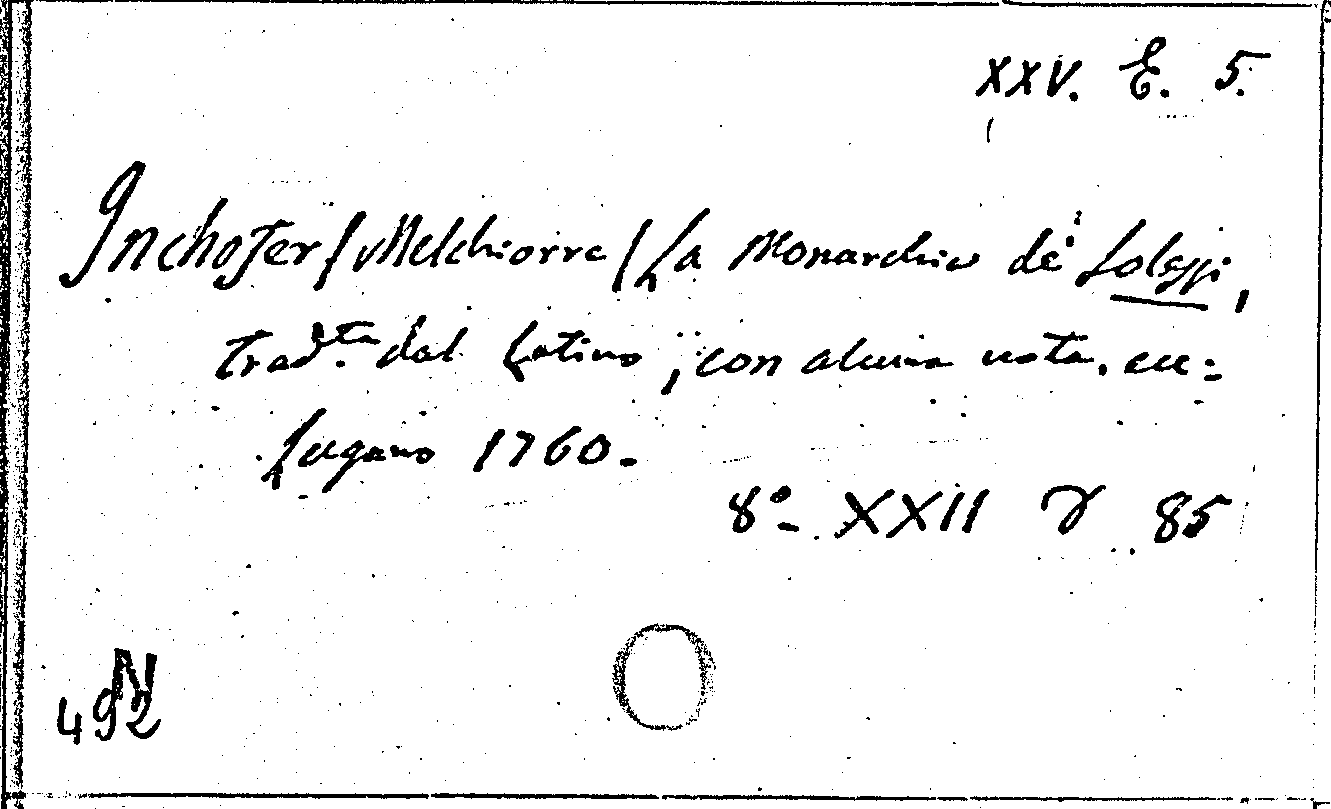 XXV. E. 5.
Inchofer / Melchiorre / La Monarchia de' Solepsi,
trad.ta dal Latino, con alcuna nota. ecc:
Lugano 1760.
8º XXII 85
N
492